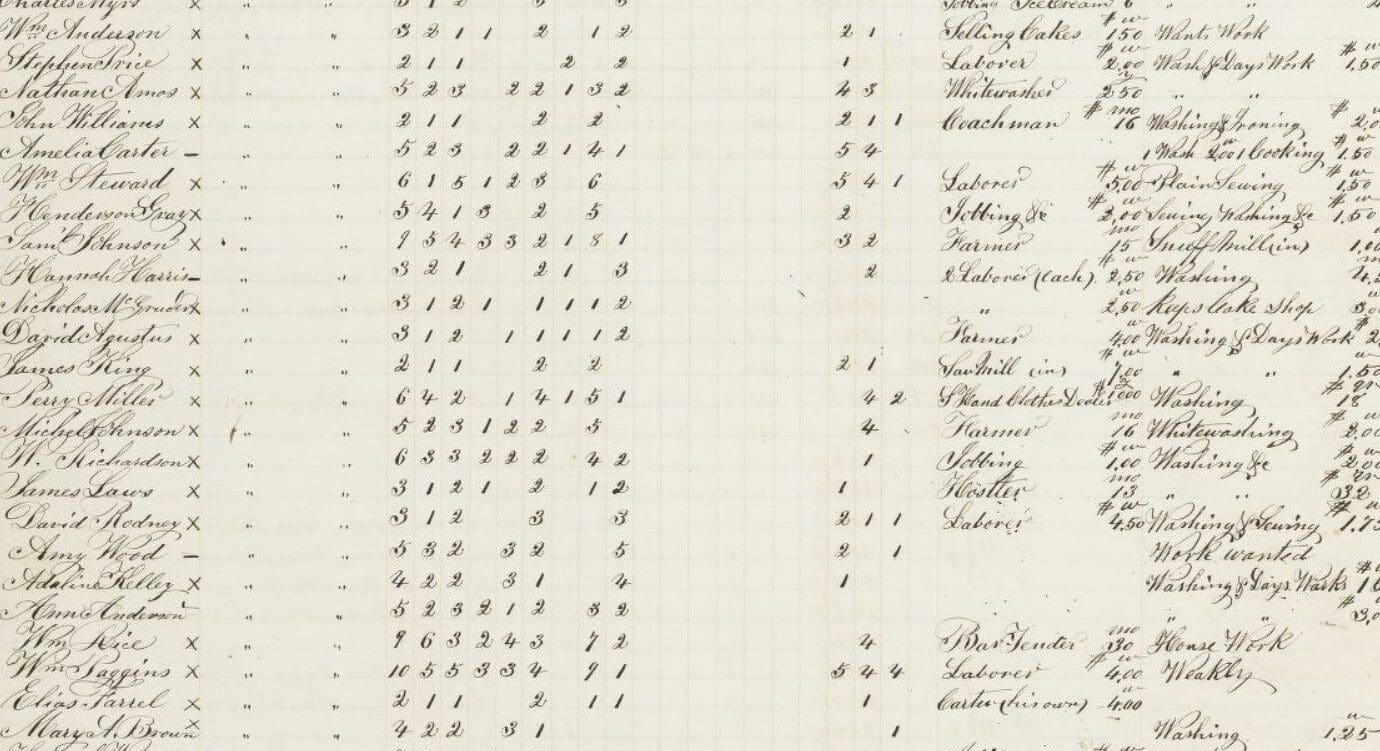 Charles Myrs x " " 3 1 2 3 3 Jobbing Ice Cream 6 " "
Wm Anderson x " " 3 2 1 1 2 1 2 2 1 Selling Cakes $ w 150 Wants Work
Stephen Price x " " 2 1 1 2 2 1 Laborer $ w 2,00 Wash & Days Work $ w 1.50
Nathan Amos x " " 5 2 3 2 2 1 3 2 4 3 Whitewasher 2 50 " "
John Williams x " " 2 1 1 2 2 2 1 1 Coachman $ mo 16 Washing & Ironing $ w 2,0
Amelia Carter – " " 5 2 3 2 2 1 4 1 5 4 1 Wash 2,00 1 Cooking $ w 1.50
Wm Steward x " " 6 1 5 1 2 3 6 5 4 1 Laborer $ w 5,00 Plain Sewing $ w 1,50
Henderson Gray x " " 5 4 1 3 2 5 2 Jobbing &c $ w 3,00 Sewing Washing &c $ w 1.50
Saml Johnson x " " 9 5 4 3 3 2 1 8 1 3 2 Farmer mo 15 Snuff Mill (in) 1,00
Hannah Harris – " " 3 2 1 2 1 3 2 2 Laborer (each) $ w 2,50 Washing
Nicholas McGruder x " " 3 1 2 1 1 1 1 2 " 2,50 Keeps Cake Shop
David Agustus x " " 3 1 2 1 1 1 1 2 Farmer w 4,00 Washing & Days Work
James King x " " 2 1 1 2 2 2 1 Saw Mill (in) $ w 7,00 " " 1.50
Perry Miller x " " 6 4 2 1 4 1 5 1 4 2 S Hand Clothes Dealer Washing $ 18
Michel Johnson x " " 5 2 3 1 2 2 5 4 Farmer mo 16 Whitewashing $ w 2,00
W. Richardson x " " 6 3 3 2 2 2 4 2 1 Jobbing $ w 1,00 Washing &c $ w 2,00
James Laws x " " 3 1 2 1 2 1 2 1 Hostler mo 13 " " $ 32
David Rodney x " " 3 1 2 3 3 2 1 1 Laborer $ w 4.50 Washing & Sewing $ w 1.75
Amy Wood – " " 5 3 2 3 2 5 2 1 Work wanted
Adaline Kelley x " " 4 2 2 3 1 4 1 Washing & Days Works $ w
Ann Anderson – " " 5 2 3 2 1 2 3 2 " " $ 3,0
Wm Rice x " " 9 6 3 2 4 3 7 2 4 Bar Tender mo 30 House Work
Wm Paggins x " " 10 5 5 3 3 4 9 1 5 4 4 Laborer $ w 4,00 Weakly
Elias Farrel x " " 2 1 1 2 1 1 1 Carter (his own) w 4.00
Mary A. Brown x " " 4 2 2 3 1 1 Washing w 1,25